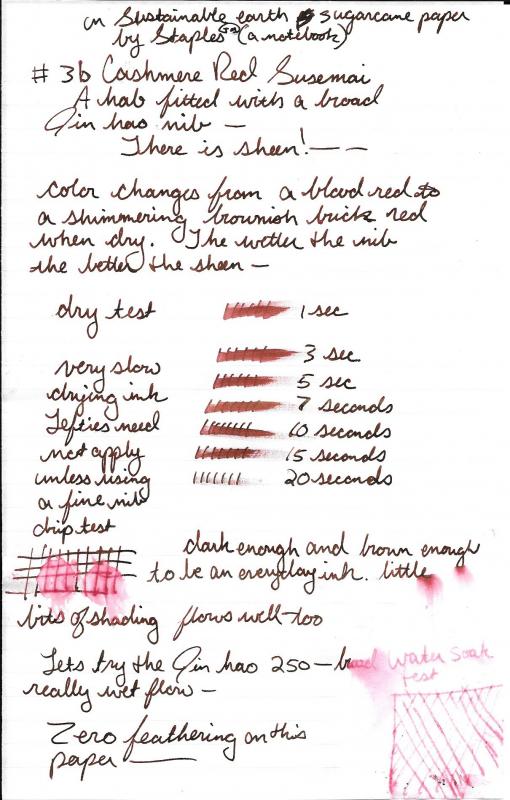 on Sustainable earth sugarcane paper
by Staples (a notebook)
#36 Cashmere Red Susemai
Ahab fitted with a broad
Jin hao nib —
There is sheen! — —
color changes from a blood red to
a shimmering brownish brick red
when dry. The wetter the nib
the better the sheen —
dry test 1 sec
3 sec
5 sec
7 seconds
10 seconds
15 seconds
20 seconds
very slow
drying ink
Lefties need
not apply
unless using
a fine nib
drip test
dark enough and brown enough
to be an everyday ink. little
bits of shading flows well too
Lets try the Jin hao 250 — broad
really wet flow —
water soak
test
Zero feathering on this
paper —